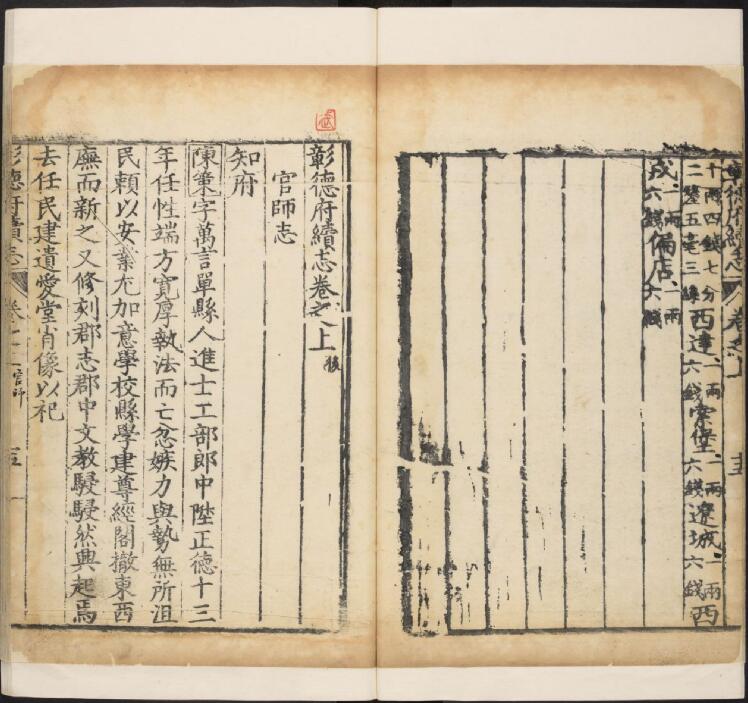 十兩四錢七分
二釐五毫三絲西達一兩六錢寨堡一兩六錢遼城一兩六錢西
戍一兩六錢偏店一兩六錢
彰德府續志卷之上後
官師志
知府
陳策字萬言單縣人進士工部郎中陞正德十三
年任性端方寬厚執法而亡忿嫉力與勢無所沮
民頼以安業尤加意學校縣學建尊經閣撤東西
廡而新之又修刻郡志郡中文教駸駸然興起焉
去任民建遺愛堂肖像以祀
彰德府續志 卷之上 官師